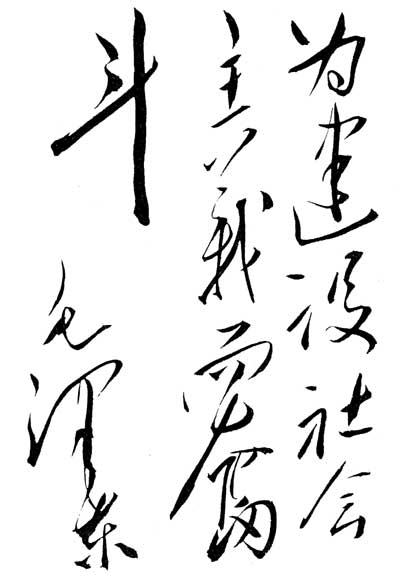 为建设社会
主义而奮
斗
毛澤东